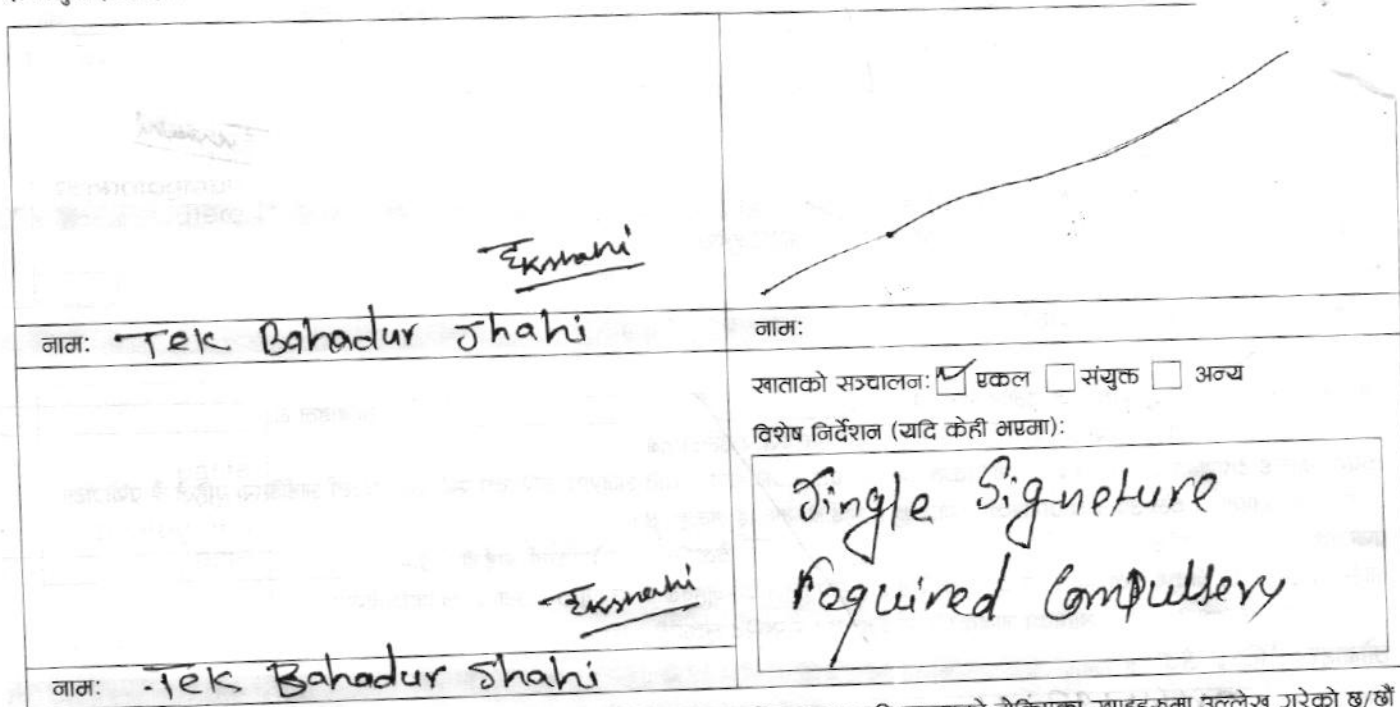 Tekshahi
नाम: Tek Bahadur Shahi
नाम:
खाताको सञ्चालन: एकल संयुक्त अन्य
विशेष निर्देशन (यदि केही भएमा):
Single Signeture
required Compulsery
Tekshahi
नाम: Tek Bahadur Shahi
उल्लेख गरेको छ/छौं